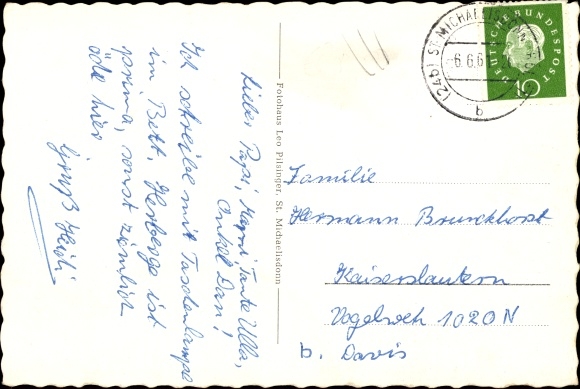 Lieber Papi, Mami, Tante Ulla,
Onkel Dan!
Ich schreibe mit Taschenlampe
im Bett. Herberge ist
prima, sonst ziemlich
öde hier
Gruß Heidi
Fotohaus Leo Pilsinger, St. Michaelisdonn
(24b) ST. MICHAELISDONN
-6.6.6
b
DEUTSCHE BUNDESPOST
10
Familie
Hermann Brunckhorst
Kaiserslautern
Vogelweh 1020 N
b. Davis